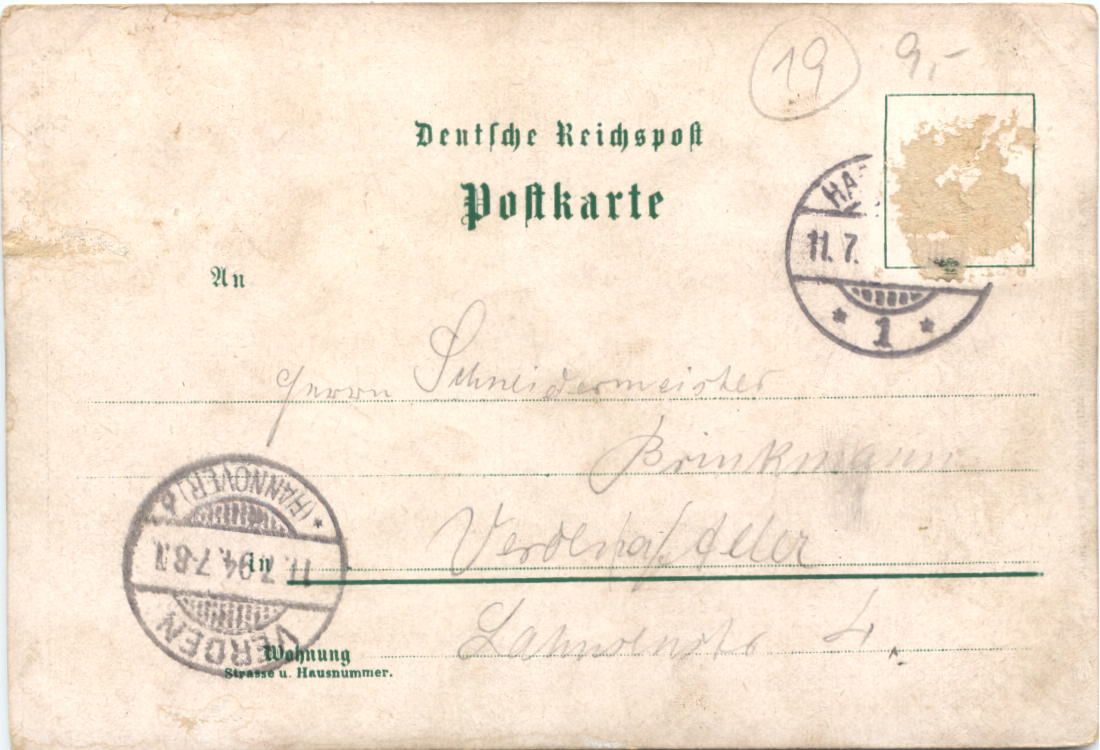 19 9,-
Deutsche Reichspost
Postkarte
HA
11.7.
* 1 *
An
Herrn Schneidermeister
Brinkmann
Verden a/ Aller
in
4
VERDEN
11.7.04.7-8N.
* (HANNOVER)
Wohnung
Strasse u. Hausnummer.